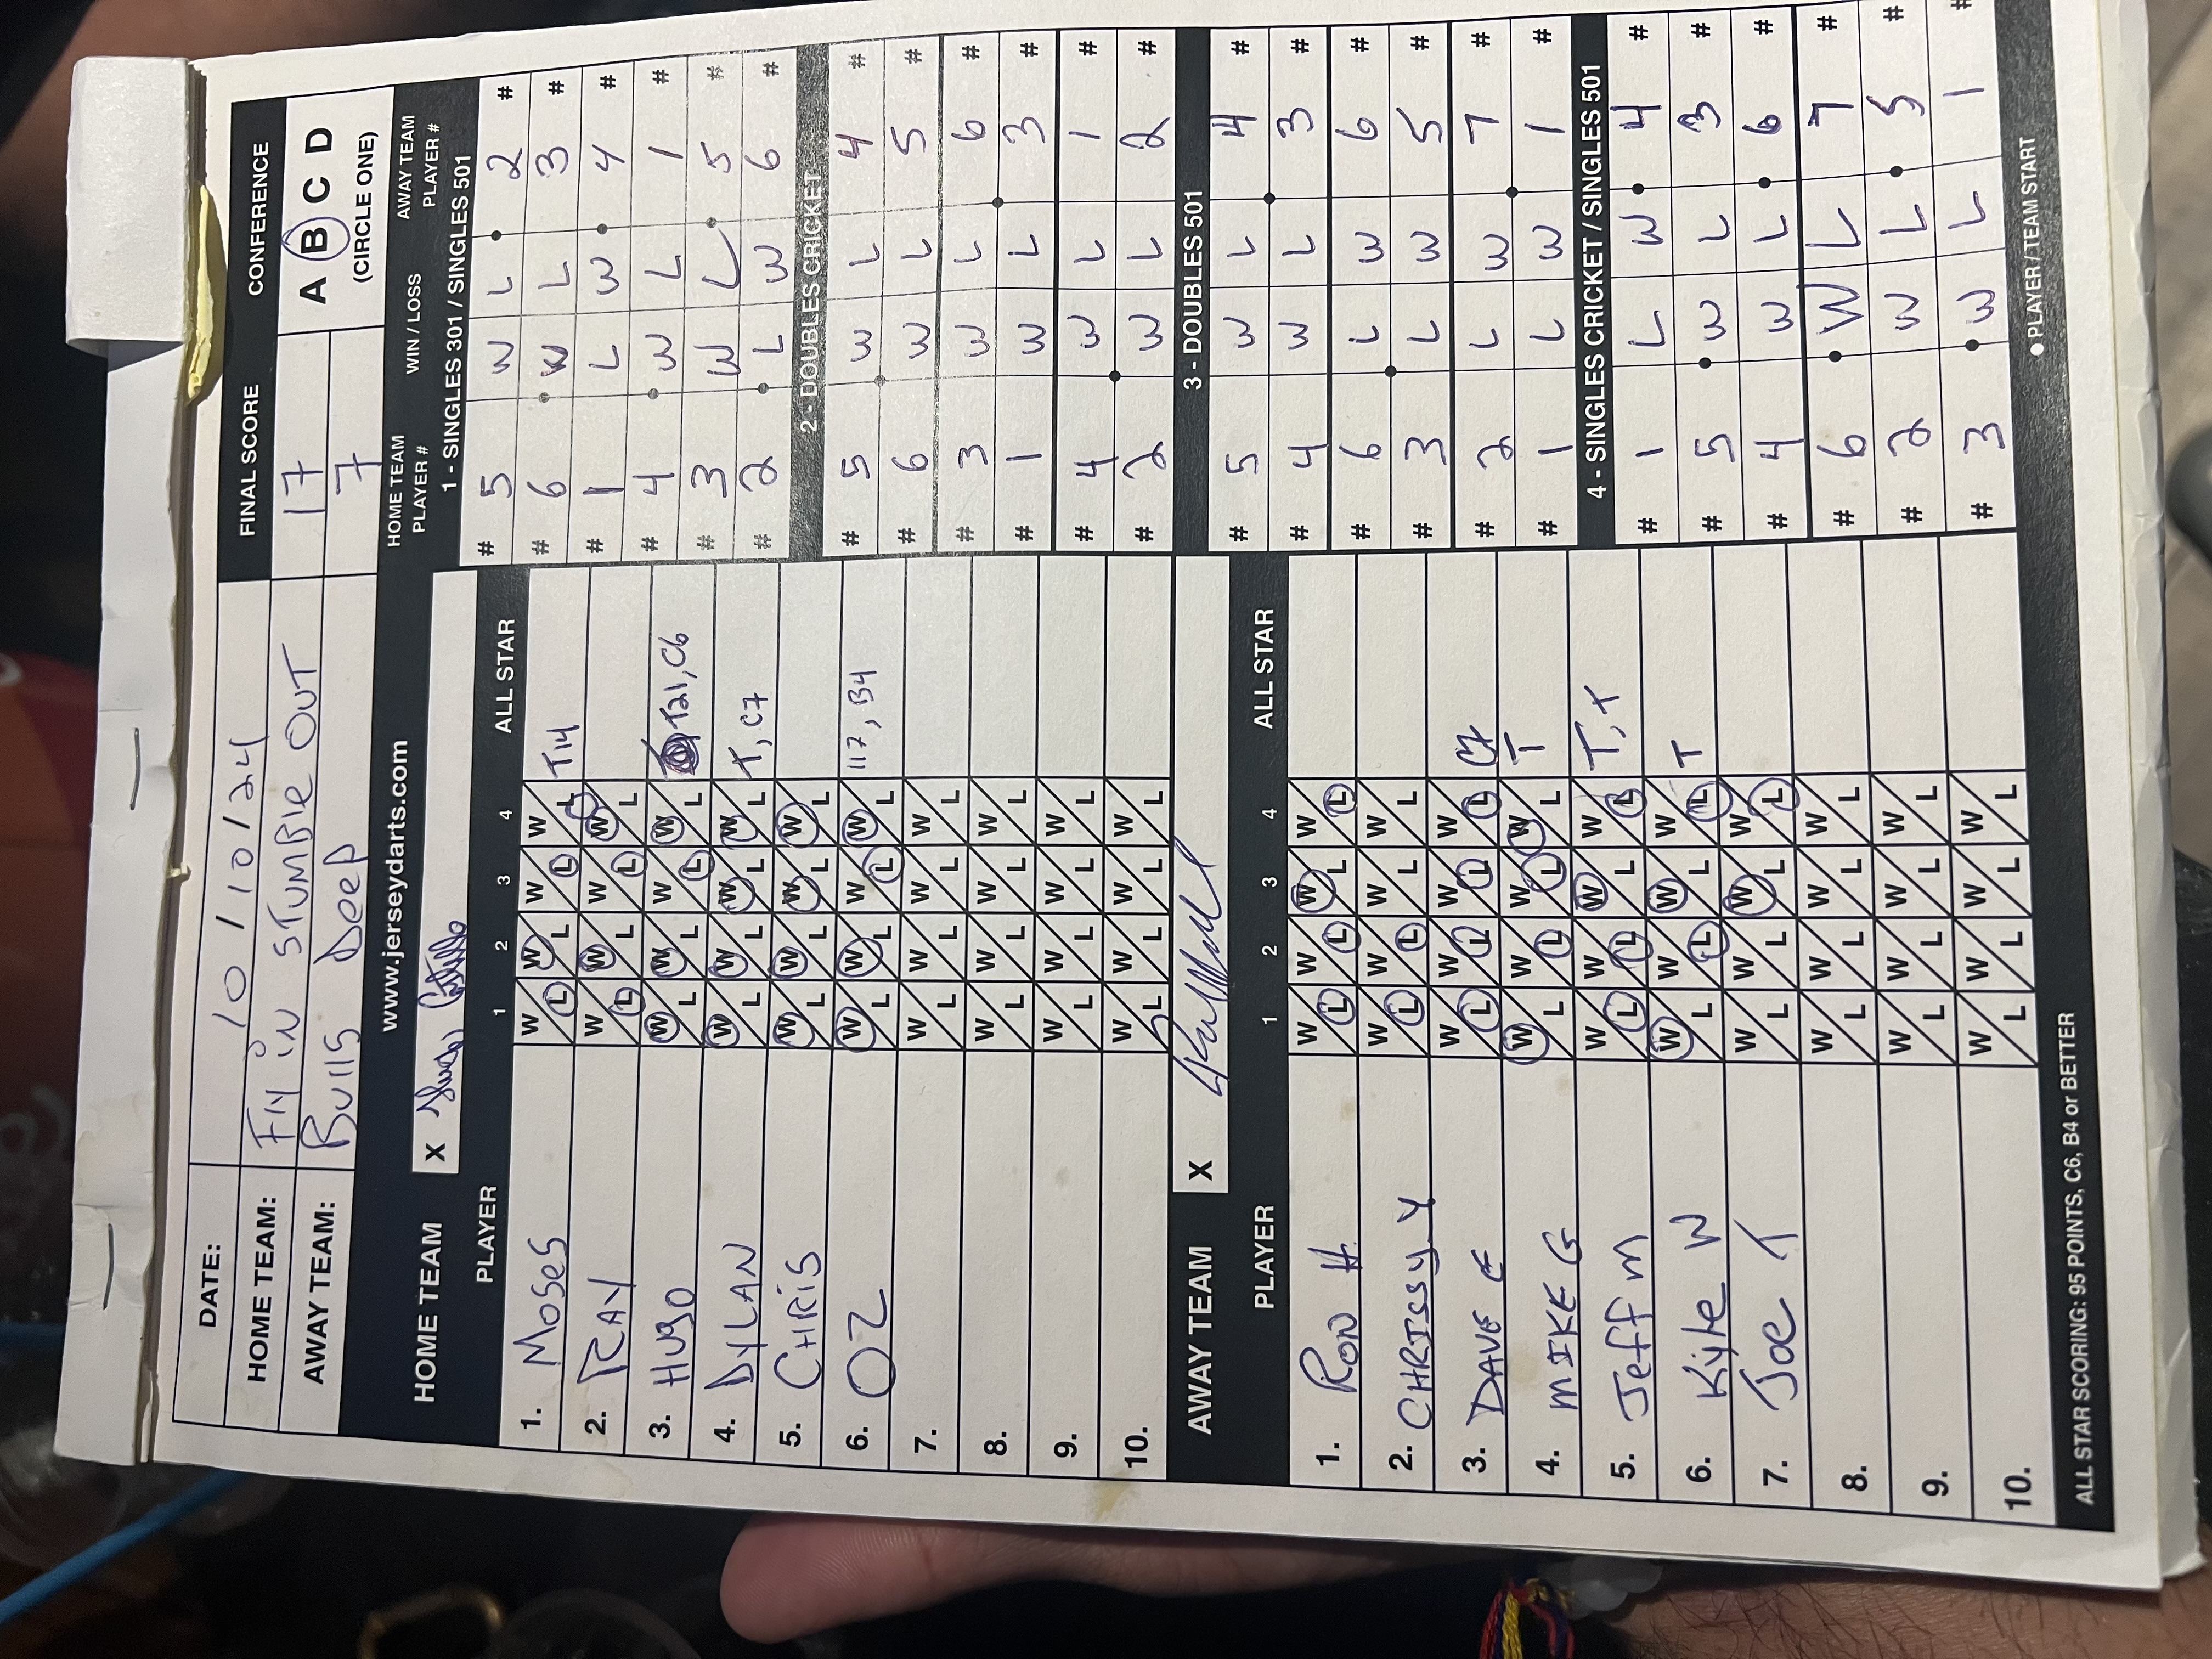 DATE: 10/10/24
FINAL SCORE CONFERENCE
HOME TEAM: Fly in STUMBLE OUT 17 A B C D
AWAY TEAM: Bulls Deep 7 (CIRCLE ONE)
www.jerseydarts.com
HOME TEAM X
PLAYER 1 2 3 4 ALL STAR
1. Moses W L W L W L W L T14
2. RAY W L W L W L W L
3. HUgO W L W L W L W L T21, C6
4. DYLAN W L W L W L W L T, C7
5. CHRiS W L W L W L W L
6. OZ W L W L W L W L 117, B4
7. W L W L W L W L
8. W L W L W L W L
9. W L W L W L W L
10. W L W L W L W L
AWAY TEAM X
PLAYER 1 2 3 4 ALL STAR
1. RON H W L W L W L W L
2. CHRISSY Y W L W L W L W L
3. DAVE E W L W L W L W L C7
4. MIKE G W L W L W L W L T
5. Jeff m W L W L W L W L T, T
6. Kyle W W L W L W L W L T
7. Joe T W L W L W L W L
8. W L W L W L W L
9. W L W L W L W L
10. W L W L W L W L
ALL STAR SCORING: 95 POINTS, C6, B4 or BETTER
HOME TEAM PLAYER # WIN / LOSS AWAY TEAM PLAYER #
1 - SINGLES 301 / SINGLES 501
# 5 W L 2 #
# 6 W L 3 #
# 1 L W 4 #
# 4 W L 1 #
# 3 W L 5 #
# 2 L W 6 #
2 - DOUBLES CRICKET
# 5 W L 4 #
# 6 W L 5 #
# 3 W L 6 #
# 1 W L 3 #
# 4 W L 1 #
# 2 W L 2 #
3 - DOUBLES 501
# 5 W L 4 #
# 4 W L 3 #
# 6 L W 6 #
# 3 L W 5 #
# 2 L W 7 #
# 1 L W 1 #
4 - SINGLES CRICKET / SINGLES 501
# 1 L W 4 #
# 5 W L 3 #
# 4 W L 6 #
# 6 W L 7 #
# 2 W L 5 #
# 3 W L 1 #
● PLAYER / TEAM START